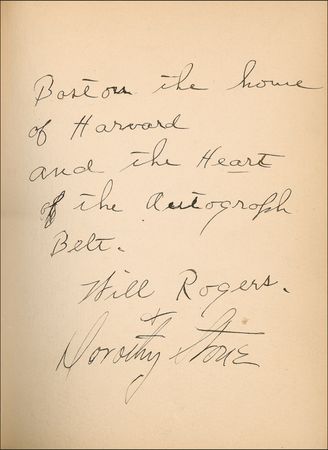 Boston the home
of Harvard
and the Heart
of the Autograph
Belt.
Will Rogers.
+
Dorothy Stone